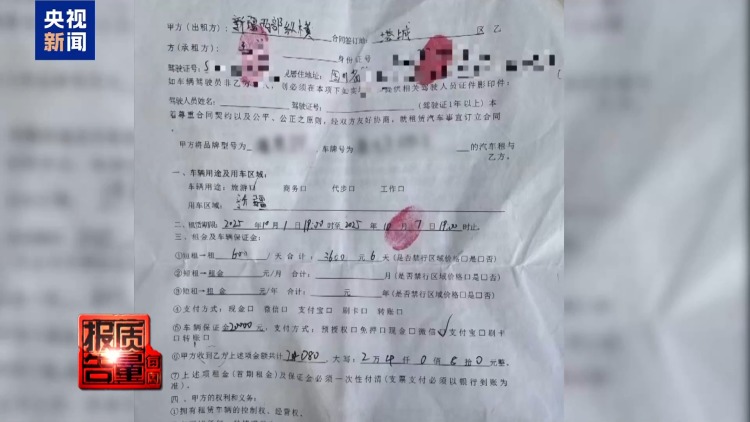 央视
新闻
甲方（出租方）：新疆西部纵横 合同签订地： 城 区 乙
方（承租方）： 身份证号
驾驶证号： 居住地址：四川省
如车辆驾驶员非乙方 人，则必须在本项下如实 提供相关驾驶人员证件影印件：
驾驶人员姓名： 驾驶证号： （驾驶证1年以上）本
着尊重合同契约以及公平、公正之原则，经双方友好协商，就租赁汽车事宜订立合同
甲方将品牌型号为 车牌号为 的汽车租与
乙方。
一、车辆用途及用车区域：
车辆用途：旅游口 商务口 代步口 工作口
用车区域：新疆
二、租赁期限：2025年10月1日19:00时至2025年10月7日19:00时止。
三、租金及车辆保证金：
①短租→租 600 / 天 合计： 3600 元 6 天（是否禁行区域价格口是口否）
②短租→租金 元/月 合计： 月（是否禁行区域价格口是口否）
③短租→租金 元/年 合计： 元 年（是否禁行区域价格口是口否）
④支付方式：现金口 微信口 支付宝口 刷卡口 转账口
⑤车辆保证金20000元，支付方式：预授权口免押口现金口微信✓支付宝口刷卡
口转账口
⑥甲方收到乙方上述项金额共计 24080 大写：2万4仟0佰8拾0元整。
⑦上述项租金（首期租金）及保证金必须一次性付清（支票支付必须以银行到账为
准）。
四、甲方的权利和义务：
①拥有租赁车辆的控制权、经营权。
质量
报告